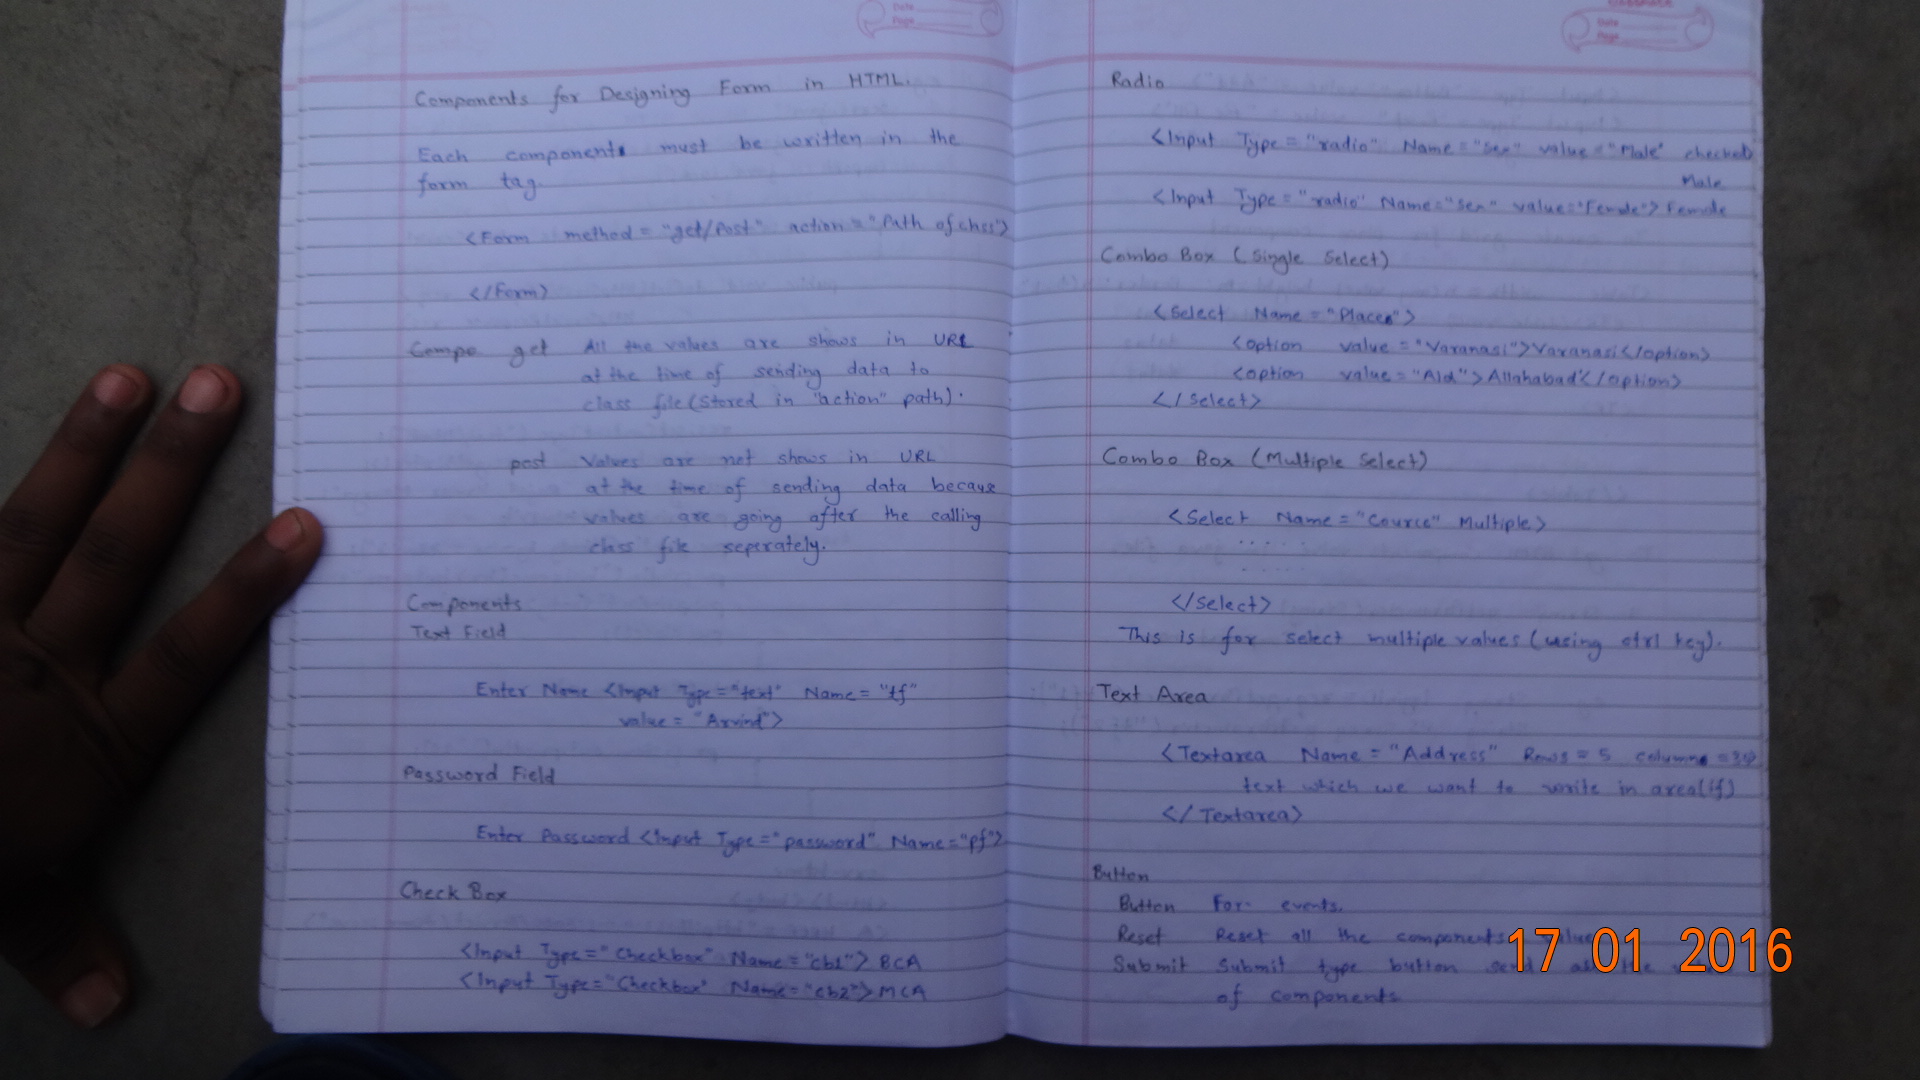 Date
Page
Components for Designing Form in HTML.
Each components must be written in the
form tag.
<Form method = "get/Post" action = "Path of class">
</Form>
Compo get All the values are shows in URL
at the time of sending data to
class file (Stored in "action" path).
post Values are not shows in URL
at the time of sending data because
values are going after the calling
class file seperately.
Components
Text Field
Enter Name <Input Type = "text" Name = "tf"
value = "Arvind">
Password Field
Enter Password <Input Type = "password" Name = "pf">
Check Box
<Input Type = "Checkbox" Name = "cb1"> BCA
<Input Type = "Checkbox" Name = "cb2"> MCA
Date
Page
Radio
<Input Type = "radio" Name = "sex" value = "Male" checked>
Male
<Input Type = "radio" Name = "sex" value = "Female"> Female
Combo Box (Single Select)
<Select Name = "Places">
<option value = "Varanasi">Varanasi</option>
<option value = "Ald">Allahabad</option>
</Select>
Combo Box (Multiple Select)
<Select Name = "Cource" Multiple>
.....
.....
</Select>
This is for select multiple values (using ctrl key).
Text Area
<Textarea Name = "Address" Rows = 5 columns = 30>
text which we want to write in area(if)
</Textarea>
Button
Button For events.
Reset Reset all the components
Submit Submit type button send the
of components
17 01 2016